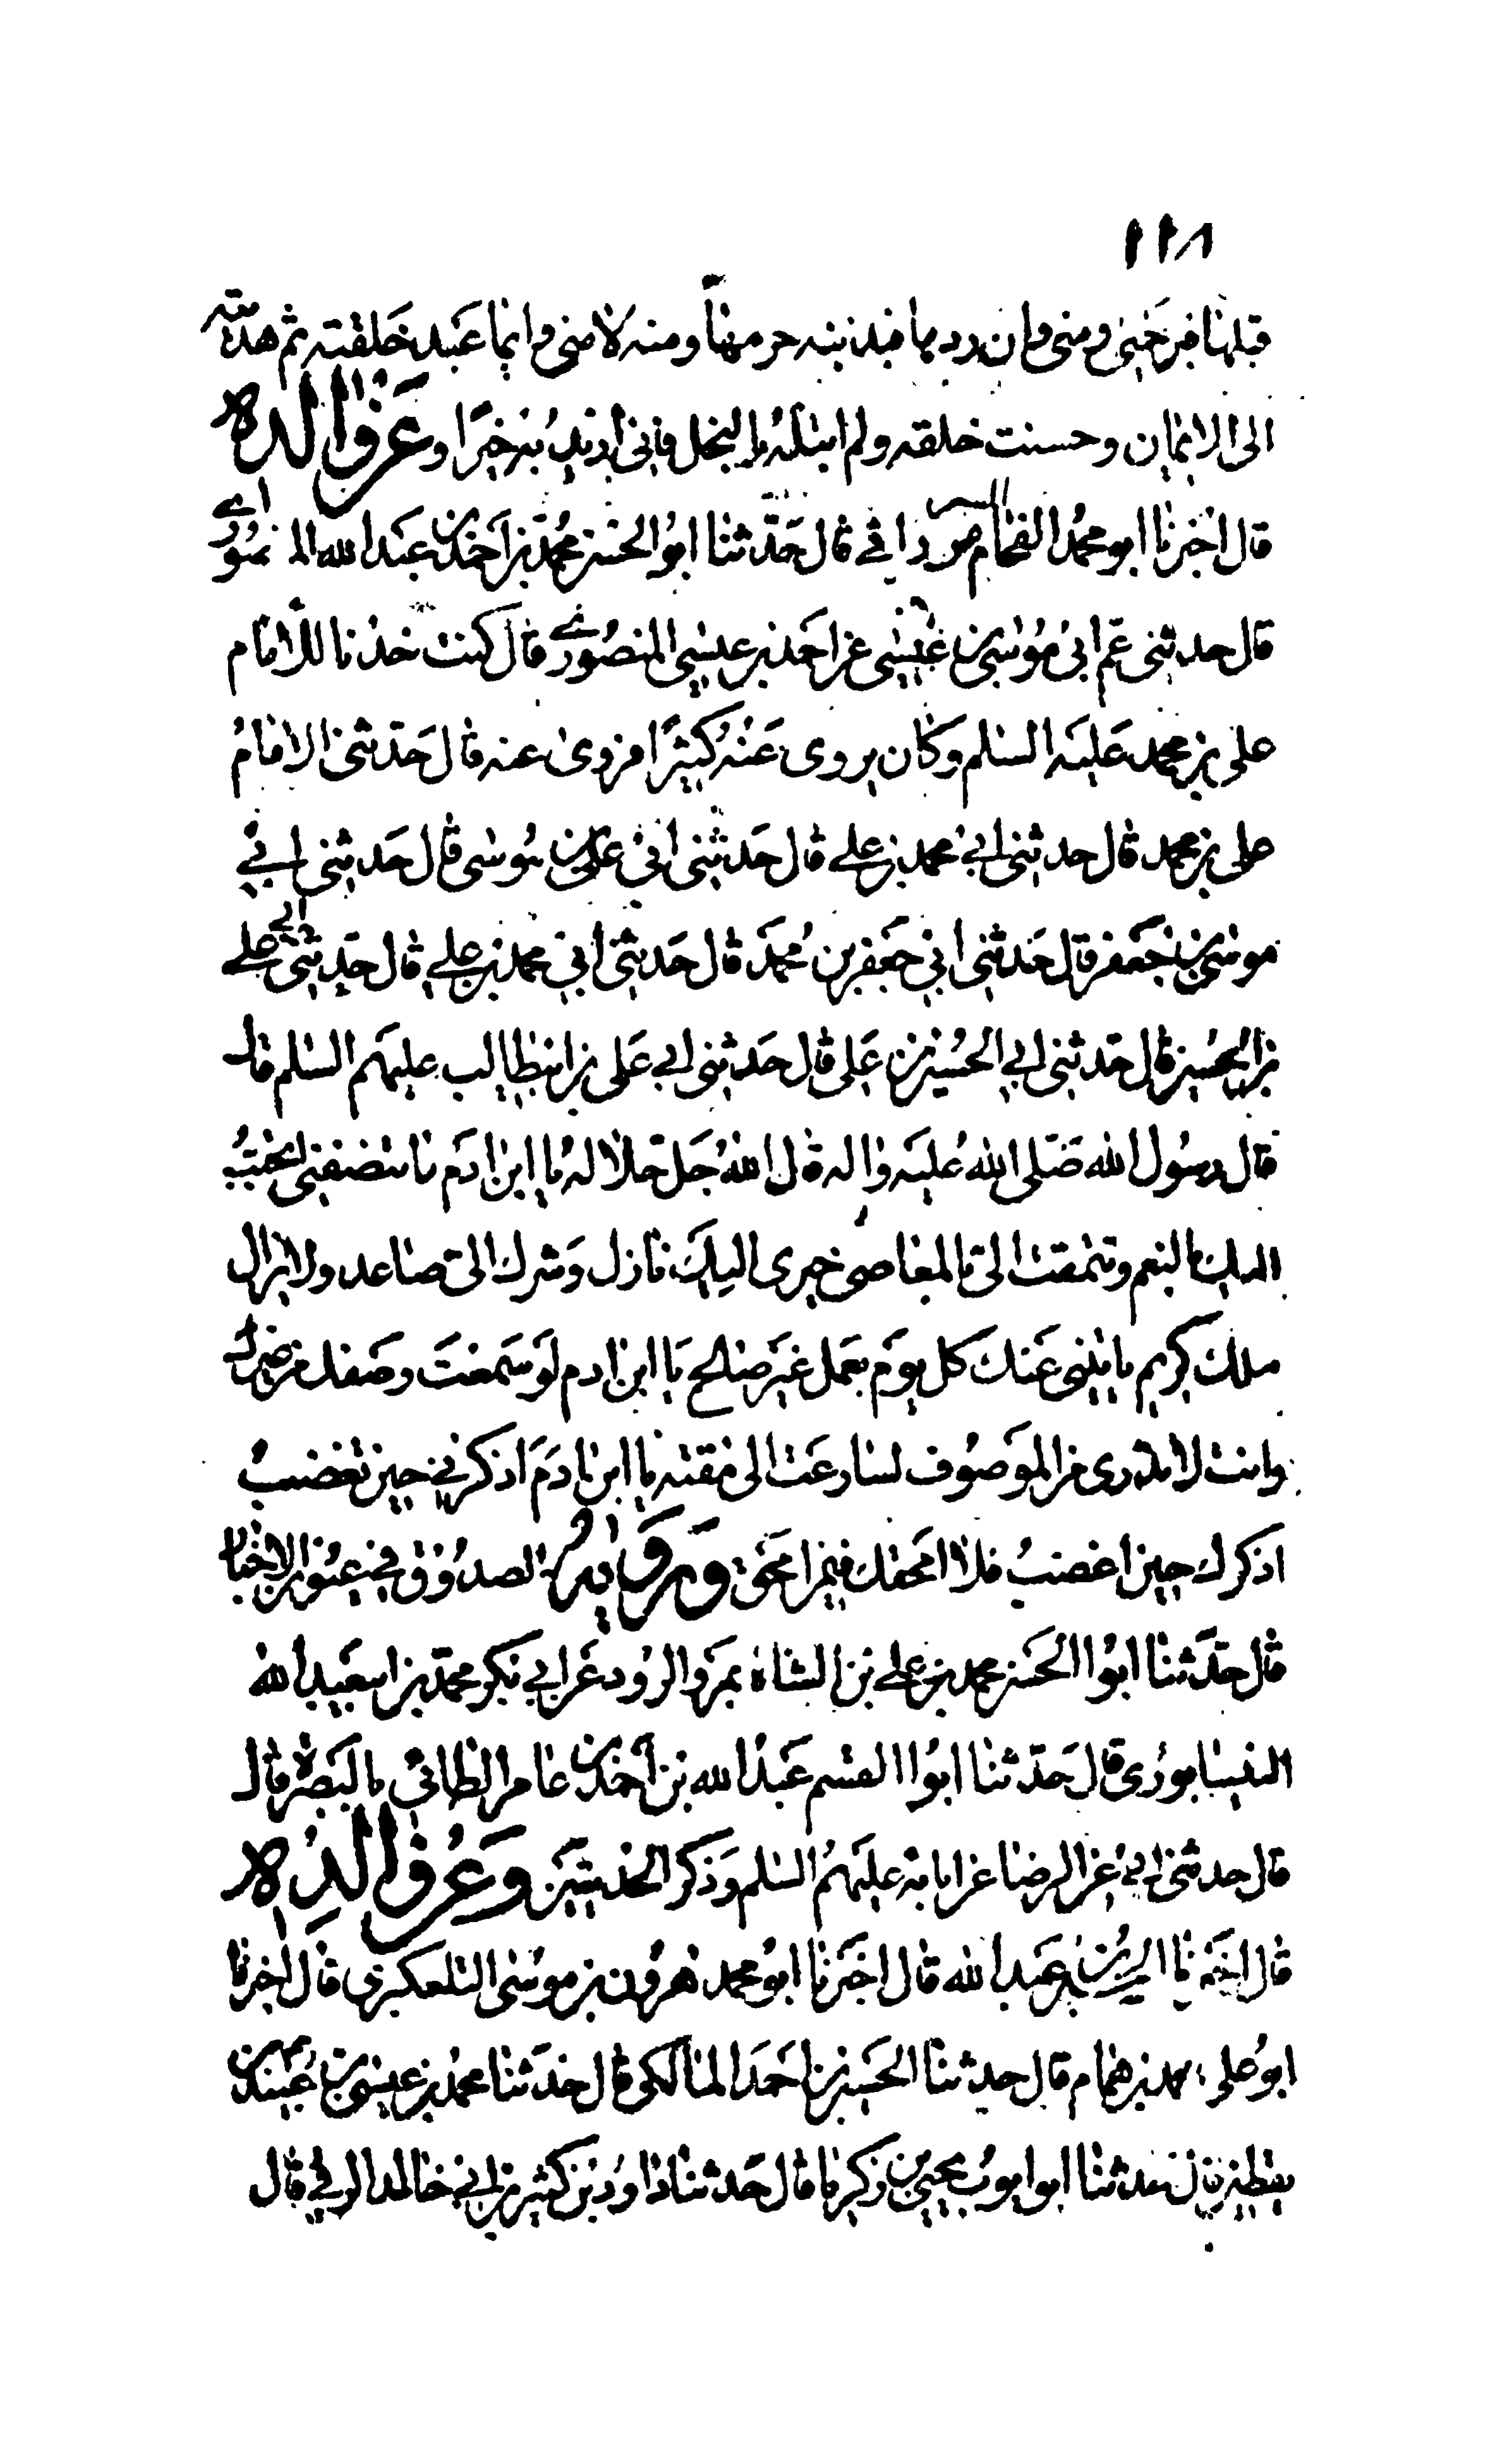 ١١٨
قبلها فبرحمتي ومني وان ردد بها فبذنبه حرمها ومنه لا مني وايما عبد خلقته ثم هديته
الى الايمان وحسنت خلقه ولم ابتله بالبخل فاني اريد به خيرا وعن والده
قال اخبرنا ابو محمد الفحام قال حدثنا ابو الحسن محمد بن احمد بن عبد الله المنصوري
قال حدثني عم ابي موسى بن عيسى عن احمد بن عيسى المنصوري قال كنت خدنا للامام
على بن محمد عليه السلم وكان يروى عنه كثيرا فروى عنه قال حدثني الامام
على بن محمد قال حدثني ابي محمد بن علي قال حدثني ابي علي بن موسى قال حدثني ابي
موسى بن جعفر قال حدثني ابي جعفر بن محمد قال حدثني ابي محمد بن علي قال حدثني ابي علي
بن الحسين قال حدثني ابي الحسين بن على قال حدثني ابي على بن ابيطالب عليهم السلم قال
قال رسول الله صلى الله عليه واله قال الله جل جلاله يا ابن ادم ما تنصفني اتحبب
اليك بالنعم وتتمقت الى بالمعاصي خيرى اليك نازل وشرك الى صاعد ولا يزال
ملك كريم ياتيني عنك كل يوم بعمل غير صالح يا ابن ادم لو سمعت وصفك من غيرك
وانت لا تدرى من الموصوف لسارعت الى مقته يا ابن ادم اذكرني حين تغضب
اذكرك حين اغضب فلا امحقك فيمن امحق ورواه الصدوق في عيون الاخبار
قال حدثنا ابوا الحسن محمد بن علي بن الشاه بمرو الرود عن ابي بكر محمد بن عبيد الله
النيسابورى قال حدثنا ابوا القسم عبد الله بن احمد بن عامر الطائى بالبصره قال
قال حدثني ابي عن الرضا عن ابائه عليهم السلم وذكر الحديثين وعن والده
قال اخبرنا الحسين بن عبد الله قال اخبرنا ابو محمد هرون بن موسى التلعكبرى قال اخبرنا
ابو على محمد بن همام قال حدثنا الحسين بن احمد المالكى قال حدثنا محمد بن عيسى بن عبيد بن
يقطين قال حدثنا ابو ايوب يحيى بن زكريا قال حدثنا داود بن كثير بن ابي خالد الرقي قال